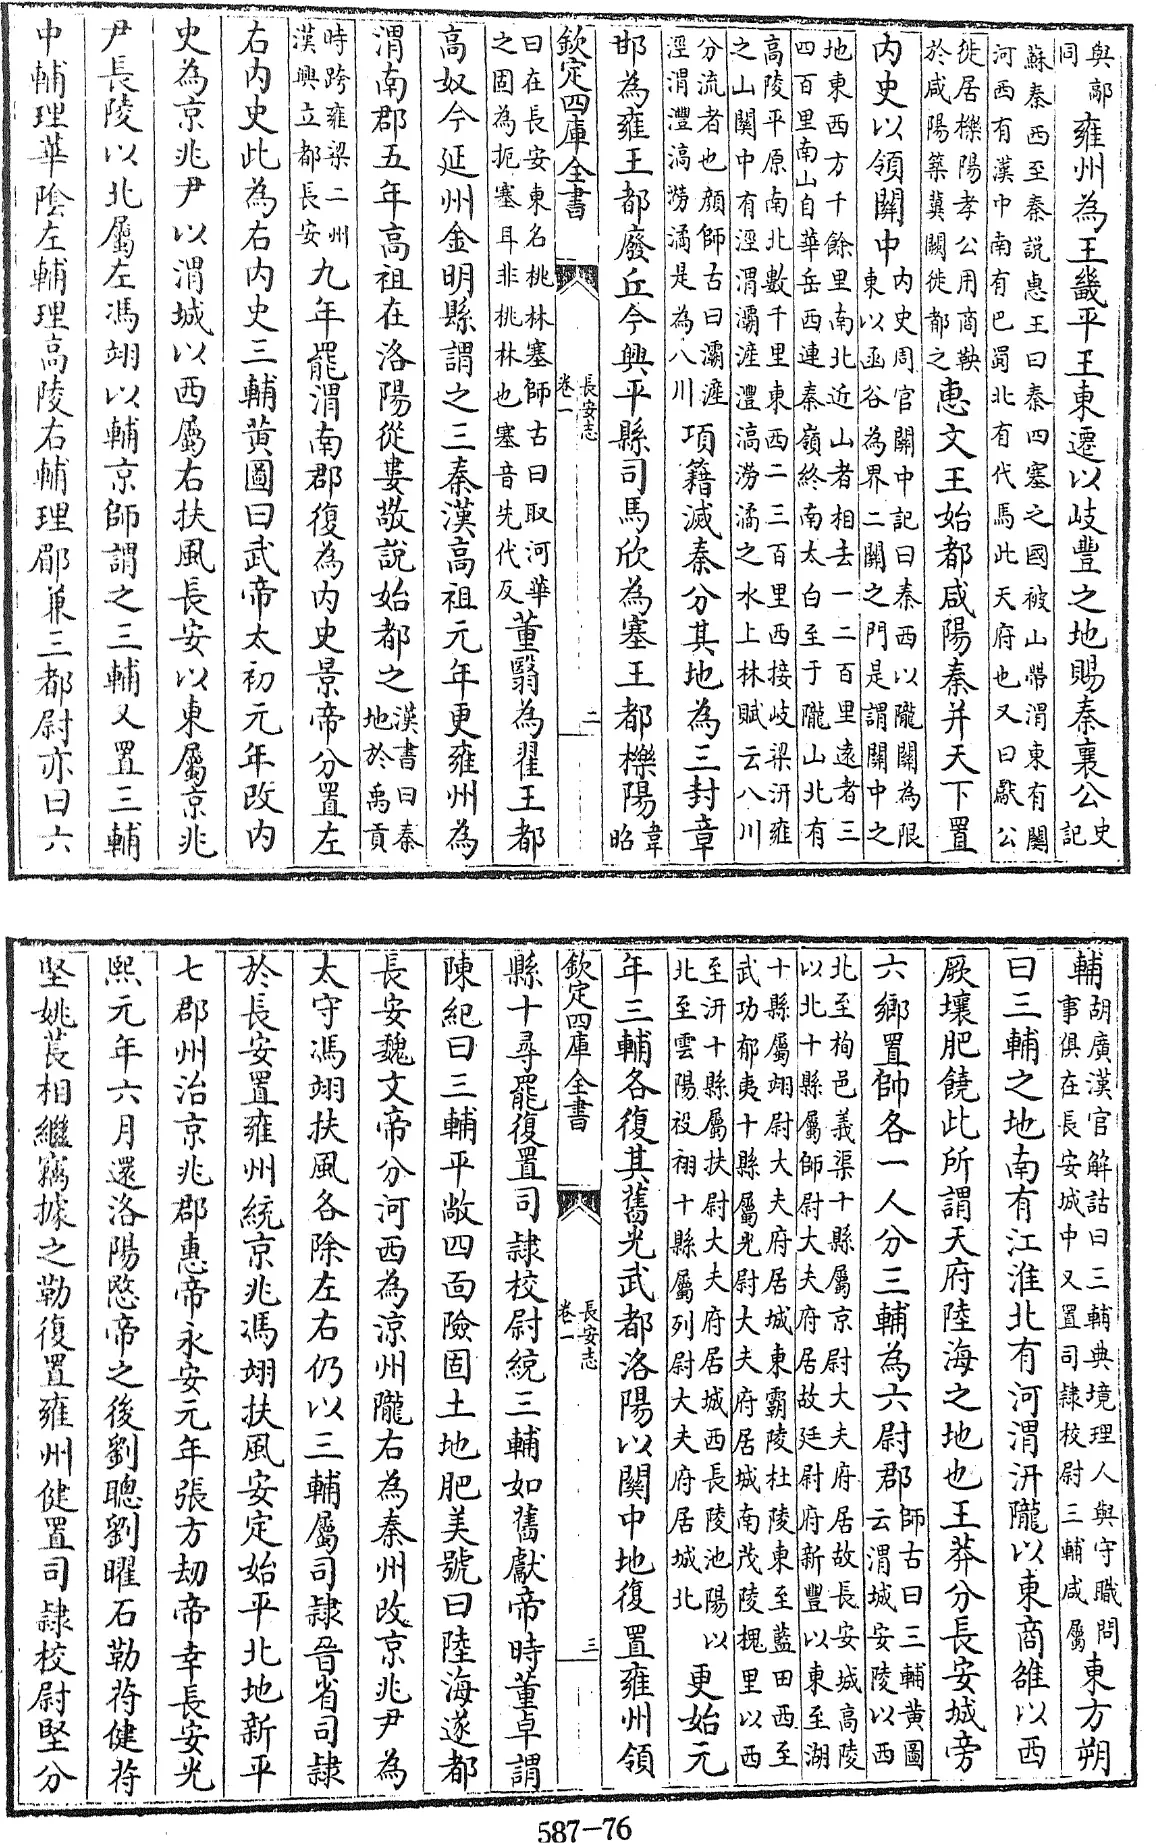 與鄗同雍州為王畿平王東遷以岐豐之地賜秦襄公史記
蘇秦西至秦說惠王曰秦四塞之國被山帶渭東有關
河西有漢中南有巴蜀北有代馬此天府也又曰獻公
徙居櫟陽孝公用商鞅於咸陽築冀闕徙都之惠文王始都咸陽秦并天下置
内史以領關中内史周官關中記曰秦西以隴關為限東以函谷為界二關之門是謂關中之
地東西方千餘里南北近山者相去一二百里遠者三
四百里南山自華岳西連秦嶺終南太白至于隴山北有
高陵平原南北數千里東西二三百里西接岐梁汧雍
之山關中有涇渭灞滻灃滈澇潏之水上林賦云八川
分流者也顔師古曰灞滻涇渭灃滈澇潏是為八川項籍滅秦分其地為三封章
邯為雍王都廢丘今興平縣司馬欣為塞王都櫟陽韋昭
欽定四庫全書
長安志
卷一
二
曰在長安東名桃林塞師古曰取河華之固為扼塞耳非桃林也塞音先代反董翳為翟王都
高奴今延州金明縣謂之三秦漢高祖元年更雍州為
渭南郡五年高祖在洛陽從婁敬說始都之漢書曰秦地於禹貢
時跨雍梁二州漢興立都長安九年罷渭南郡復為内史景帝分置左
右内史此為右内史三輔黄圖曰武帝太初元年改内
史為京兆尹以渭城以西屬右扶風長安以東屬京兆
尹長陵以北屬左馮翊以輔京師謂之三輔又置三輔
中輔理華陰左輔理高陵右輔理郿兼三都尉亦曰六
輔胡廣漢官解詁曰三輔典境理人與守職問事俱在長安城中又置司隷校尉三輔咸屬東方朔
曰三輔之地南有江淮北有河渭汧隴以東商雒以西
厥壤肥饒此所謂天府陸海之地也王莽分長安城旁
六鄉置帥各一人分三輔為六尉郡師古曰三輔黄圖云渭城安陵以西
北至栒邑義渠十縣屬京尉大夫府居故長安城高陵
以北十縣屬師尉大夫府居故廷尉府新豐以東至湖
十縣屬翊尉大夫府居城東霸陵杜陵東至藍田西至
武功郁夷十縣屬光尉大夫府居城南茂陵槐里以西
至汧十縣屬扶尉大夫府居城西長陵池陽以北至雲陽祋祤十縣屬列尉大夫府居城北更始元
年三輔各復其舊光武都洛陽以關中地復置雍州領
欽定四庫全書
長安志
卷一
三
縣十尋罷復置司隷校尉統三輔如舊獻帝時董卓謂
陳紀曰三輔平敞四面險固土地肥美號曰陸海遂都
長安魏文帝分河西為涼州隴右為秦州改京兆尹為
太守馮翊扶風各除左右仍以三輔屬司隷晉省司隷
於長安置雍州統京兆馮翊扶風安定始平北地新平
七郡州治京兆郡惠帝永安元年張方劫帝幸長安光
熙元年六月還洛陽愍帝之後劉聰劉曜石勒苻健苻
堅姚萇相繼竊據之勒復置雍州健置司隷校尉堅分
587-76